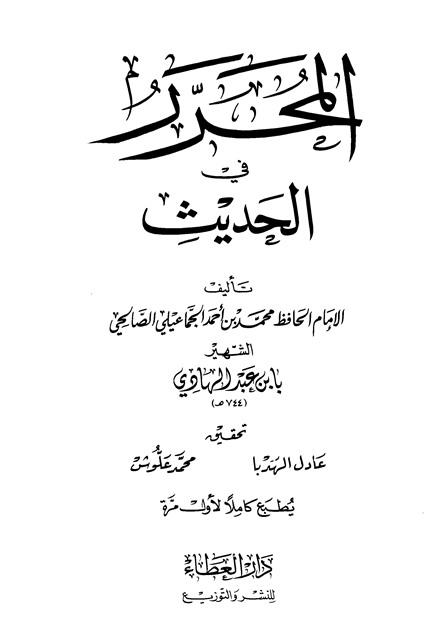 المحرر
في
الحديث
تأليف
الإمام الحافظ محمد بن أحمد الجماعيلي الصالحي
الشهير
بابن عبد الهادي
(٧٤٤ هـ)
تحقيق
عادل الهدبا محمد علوش
يُطبع كاملاً لأول مرة
دار العطاء
للنشر والتوزيع